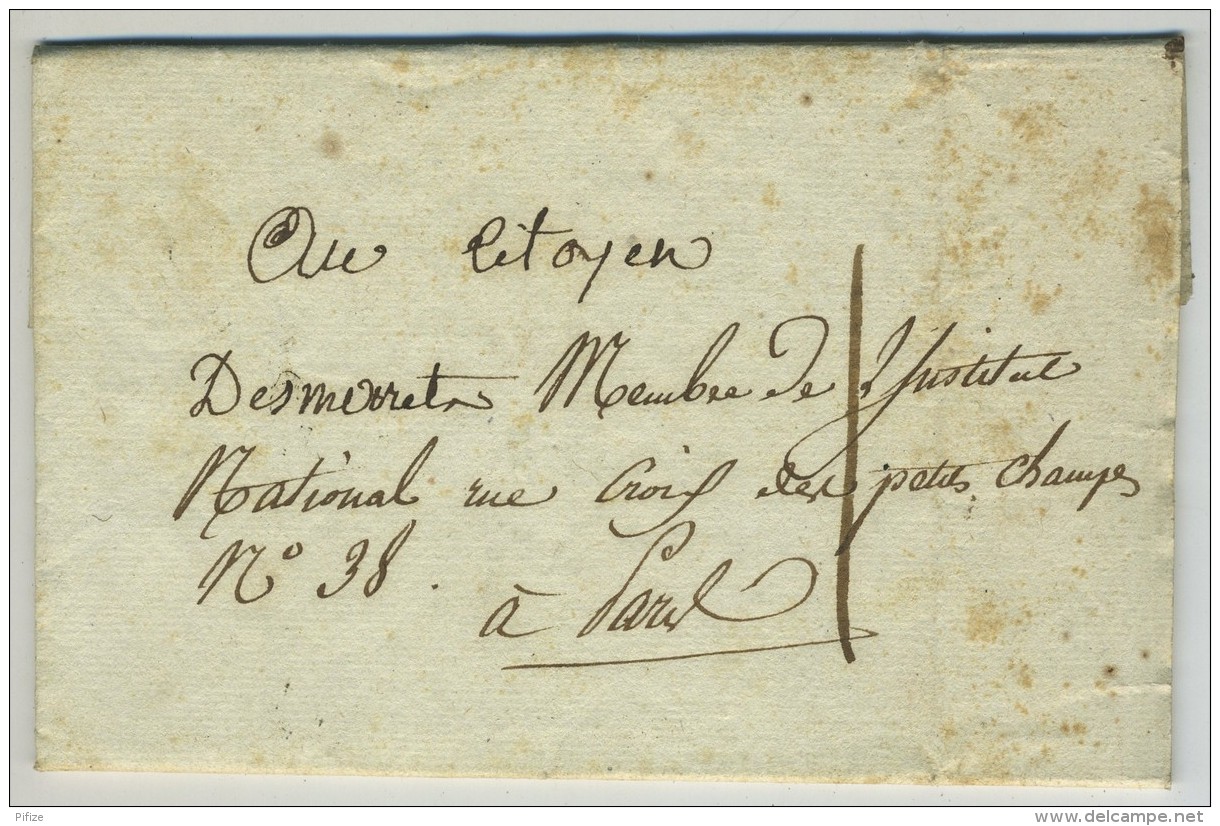 Au Citoyen
Desmarets Membre de l'Institut
National rue Croix des petits champs
N° 38.
à Paris
Pifize
www.delcampe.net